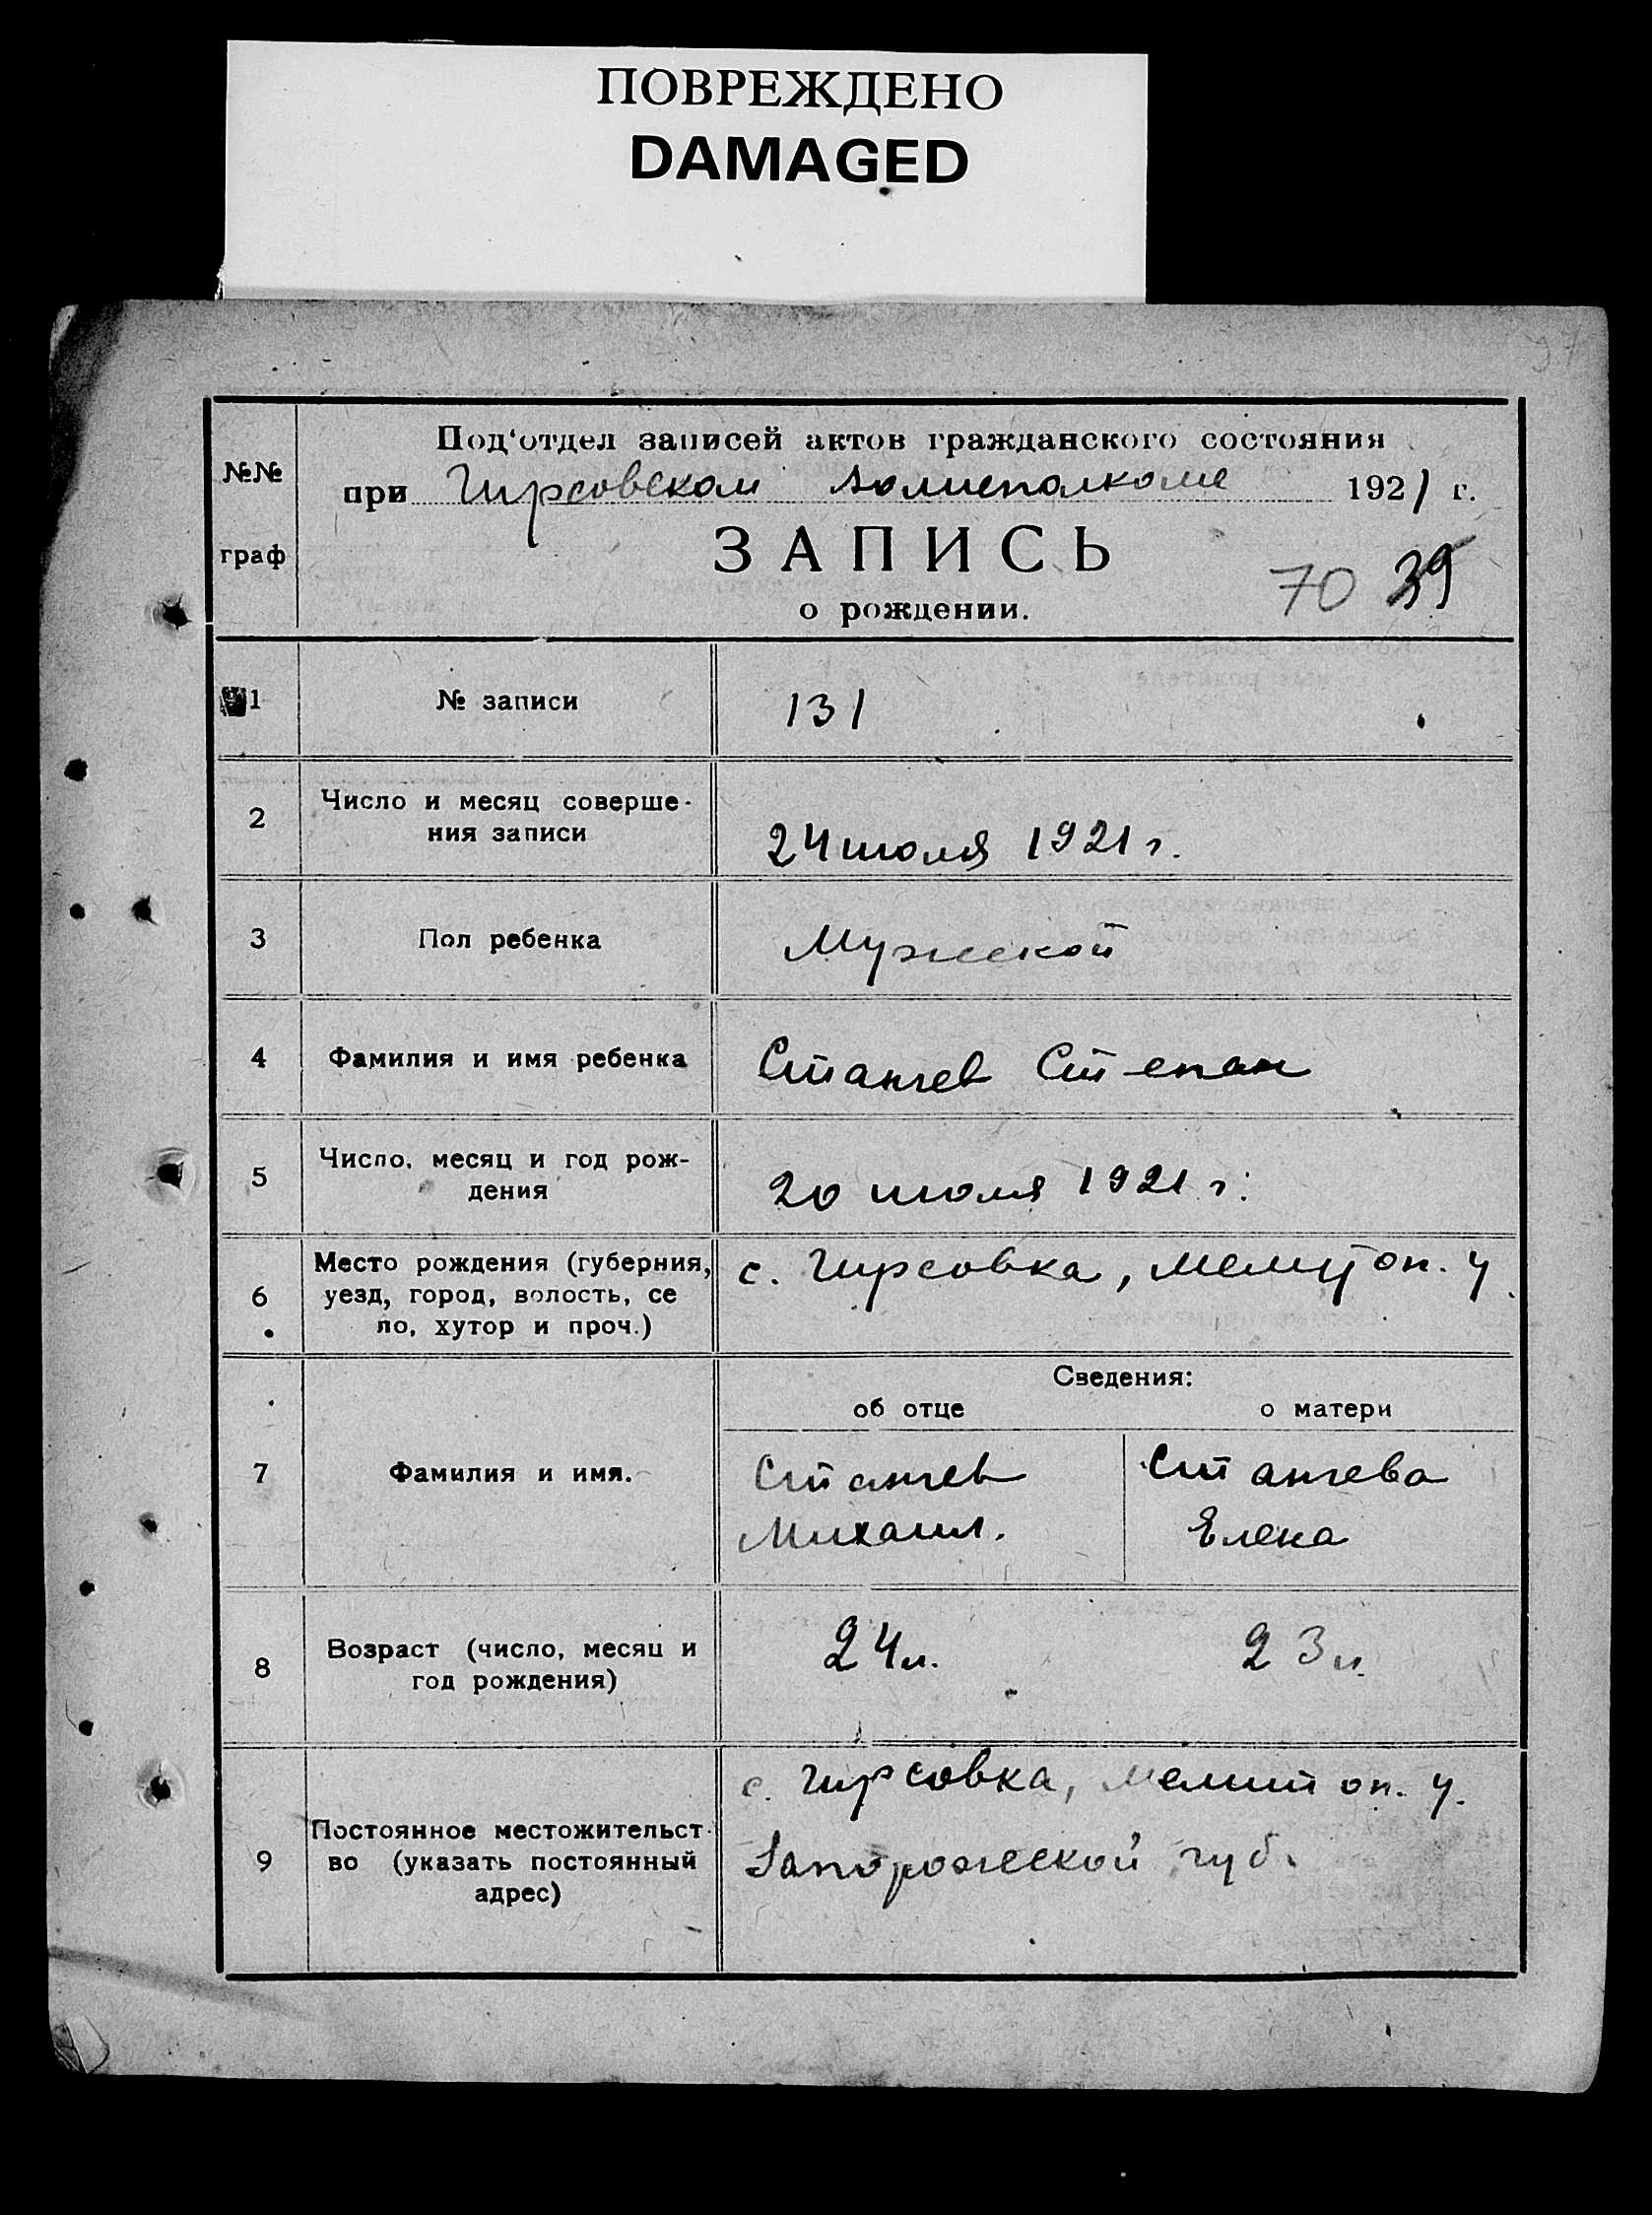 ПОВРЕЖДЕНО
DAMAGED
97
№№ граф
Под'отдел записей актов гражданского состояния
при Гирсовском волисполкоме 1921 г.
ЗАПИСЬ
70 39
о рождении.
1 № записи 131
2 Число и месяц соверше-
ния записи 24 июля 1921 г.
3 Пол ребенка Мужеской
4 Фамилия и имя ребенка Станчев Степан
5 Число, месяц и год рож-
дения 20 июля 1921 г.
6 Место рождения (губерния, с. Гирсовка, Мелитоп. у.
уезд, город, волость, се
ло, хутор и проч.)
Сведения:
об отце о матери
7 Фамилия и имя. Станчев Станчева
Михаил. Елена
8 Возраст (число, месяц и 24 л. 23 л.
год рождения)
с. Гирсовка, Мелитоп. у.
9 Постоянное местожительст-
во (указать постоянный Запорожеской губ.
адрес)